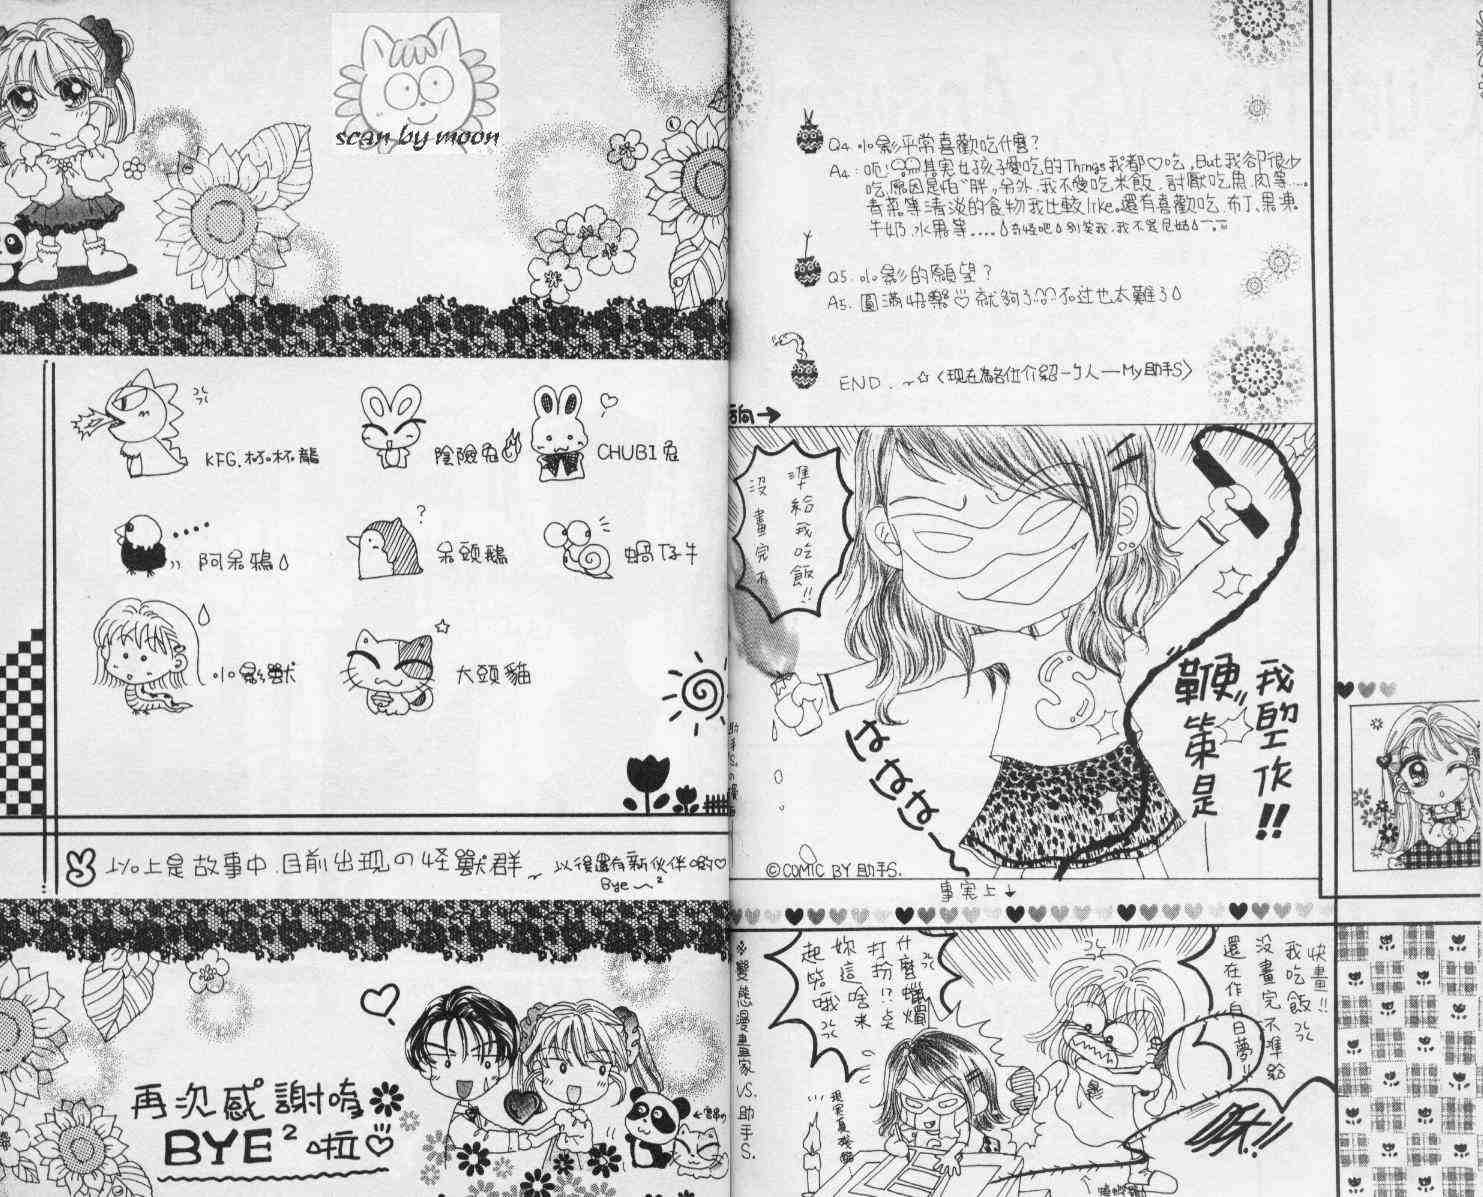 scan by moon
Q4.小影平常喜歡吃什麼?
A4:呃!其実女孩子愛吃的Things我都♡吃,But我卻很少
吃,原因是怕ˇ胖,另外,我不愛吃米飯,討厭吃魚,肉等....。
青菜等清淡的食物我比較like。還有喜歡吃,布丁、果凍
牛奶,水果等....奇怪吧 別笑我,我不是尼姑
Q5.小影的願望?
A5.圓滿快樂♡就夠了 不过也太難了
END.~☆〈現在為各位介紹一ㄅ人—My助手S〉
方向→
KFG.杯杯龍
陰險兔
CHUBI兔
阿呆鴉
呆頭鵝
蝸仔牛
小影獸
大頭貓
以上是故事中,目前出現の怪獸群~
以後還有新伙伴喲♡
Bye~²
再次感謝唷
BYE²啦♡
沒畫完不
準給我吃飯!!
我助工作!!
鞭策是—
ははは〜
©COMIC BY 助手S.
事実上↓
※變態漫畫家 VS. 助手S.
什麼蠟燭
打扮!?
妳這啥來
起笑哦
快畫!!
我吃飯
沒畫完不準給
還在作白日夢!!